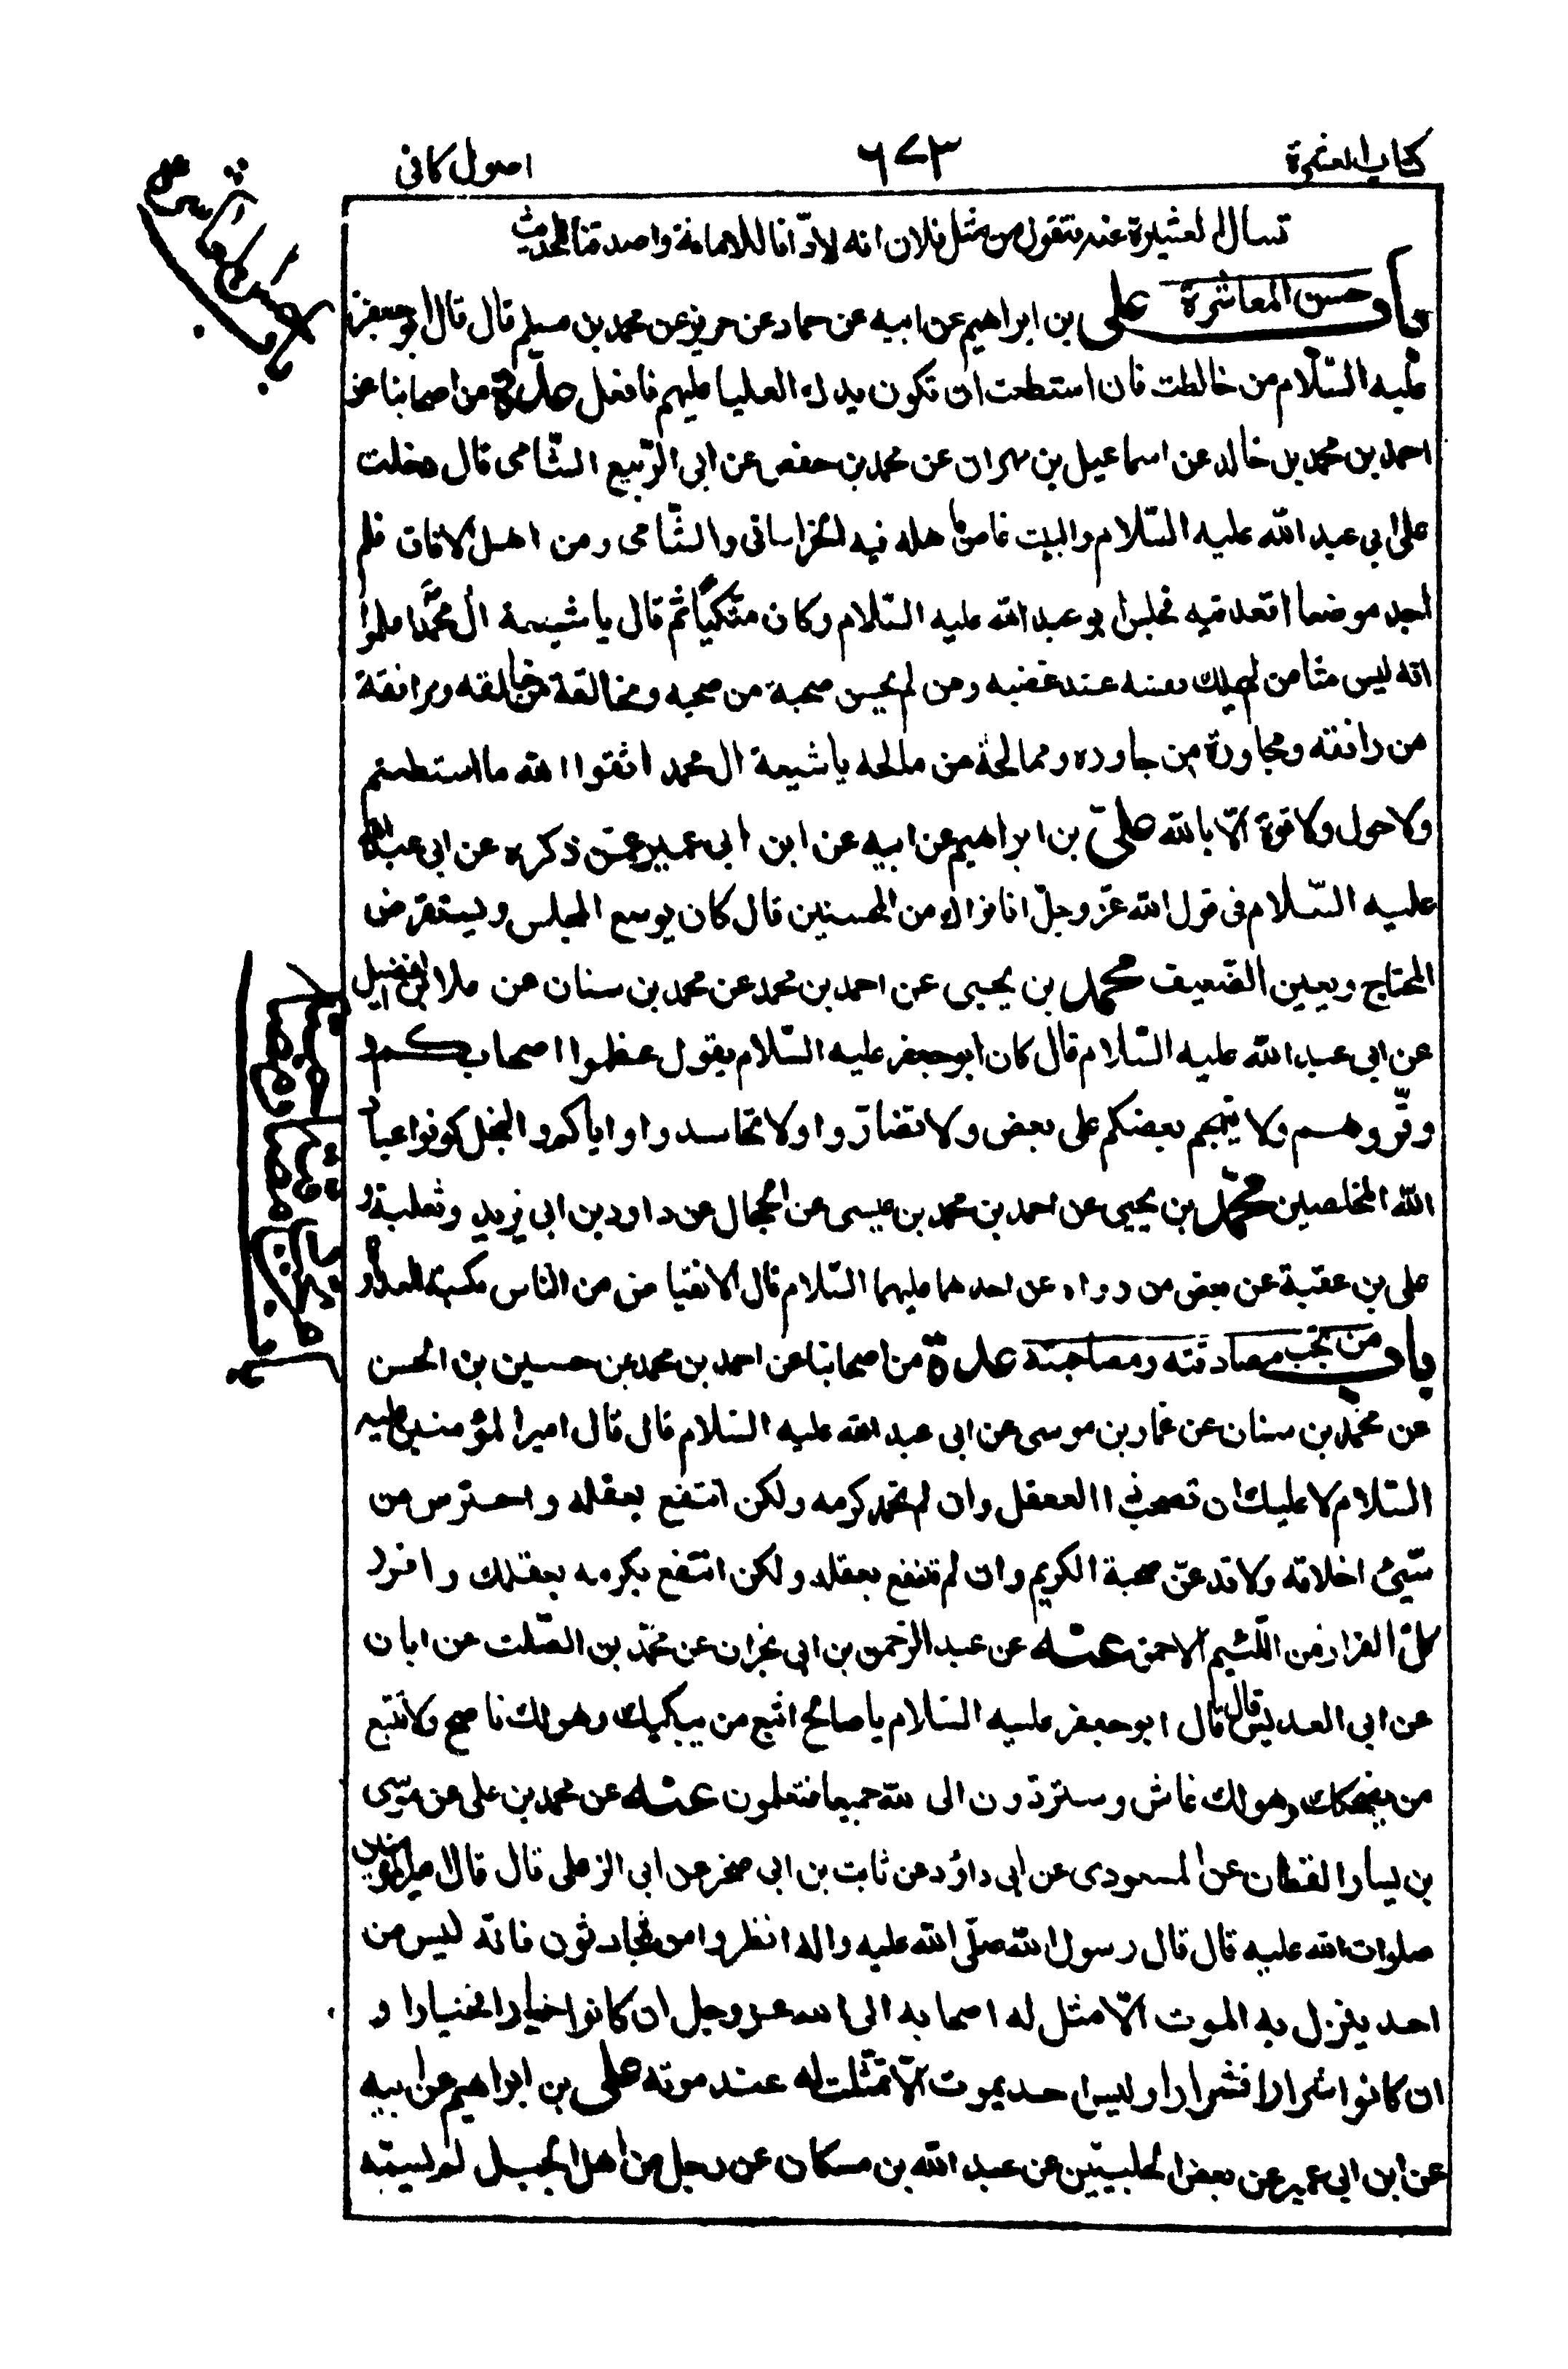 كتاب العشرة
٦٧٣
اصول كافى
تسال العشيرة عنه فتقول من مثل فلان انه لادّانا للامانة واصدقنا للحديث
باب حسن المعاشرة على بن ابراهيم عن ابيه عن حماد عن حريز عن محمد بن مسلم قال قال ابوجعفر
عليه السّلام من خالطت فان استطعت ان تكون يدك العليا عليهم فافعل عدة من اصحابنا عن
احمد بن محمد بن خالد عن اسماعيل بن مهران عن محمد بن حفص عن ابى الرّبيع الشّامى قال دخلت
على ابى عبد الله عليه السّلام والبيت غاصّ باهله فيه الخراسانى والشّامى ومن اهل الافاق فلم
اجد موضعا اقعد فيه فجلس ابو عبد الله عليه السّلام وكان متّكيًا ثم قال يا شيعة ال محمّد اعلموا
انه ليس منّا من لم يملك نفسه عند غضبه ومن لم يحسن صحبة من صحبه ومخالقة من خالقه ومرافقة
من رافقه ومجاورة من جاوره وممالحة من مالحه يا شيعة ال محمد اتقوا الله ما استطعتم
ولا حول ولا قوة الّا بالله على بن ابراهيم عن ابيه عن ابن ابى عمير عمّن ذكره عن ابى عبد الله
عليه السّلام فى قول الله عزّ وجلّ انا نراك من المحسنين قال كان يوسع المجلس و يستقرض
المحتاج و يعين الضّعيف محمد بن يحيى عن احمد بن محمد عن محمد بن سنان عن علا بن الفضيل
عن ابى عبد الله عليه السّلام قال كان ابوجعفر عليه السّلام يقول عظموا اصحابكم و
وقّروهم ولا يتهجم بعضكم على بعض ولا تضارّوا ولا تحاسدوا واياكم والبخل كونوا عباد
الله المخلصين محمّد بن يحيى عن احمد بن محمد بن عيسى عن الحجال عن داود بن ابى يزيد وثعلبة و
على بن عقبة عن بعض من رواه عن احدهما عليهما السّلام قال الانقباض من الناس مكسبة للعداوة
باب من تجب مصادقته ومصاحبته عدة من اصحابنا عن احمد بن محمد عن حسين بن الحسن
عن محمّد بن سنان عن عمّار بن موسى عن ابى عبد الله عليه السّلام قال قال امير المؤمنين عليه
السّلام لا عليك ان تصحب ذا العقل وان لم تحمد كرمه ولكن انتفع بعقله واحترس من
سّيئ اخلاقه ولا تدعنّ صحبة الكريم وان لم تنتفع بعقله ولكن انتفع بكرمه بعقلك وافرر
كلّ الفرار من اللّئيم الاحمق عنه عن عبد الرّحمن بن ابى نجران عن محمّد بن الصّلت عن ابان
عن ابى العديس قال قال ابوجعفر عليه السّلام يا صالح اتّبع من يبكيك وهو لك ناصح ولا تتّبع
من يضحكك وهو لك غاش وستردّون الى الله جميعا فتعلمون عنه عن محمد بن على عن موسى
بن يسار القطان عن المسعودى عن ابى داؤد عن ثابت بن ابى صخر عن ابى الزعلى قال قال امير المؤمنين
صلوات الله عليه قال قال رسول الله صلّى الله عليه واله انظروا من تحادثون فانّه ليس من
احد ينزل به الموت الّا مثل له اصحابه الى الله عزوجل ان كانوا خيارا فخيارا و
ان كانوا شرارا فشرارا وليس احد يموت الّا تمثّلت له عند موته على بن ابراهيم عن ابيه
عن ابن ابى عمير عن بعض الحلبيّين عن عبد الله بن مسكان عن رجل من اهل الجبل لم يسمّه
باب حسن المعاشرة